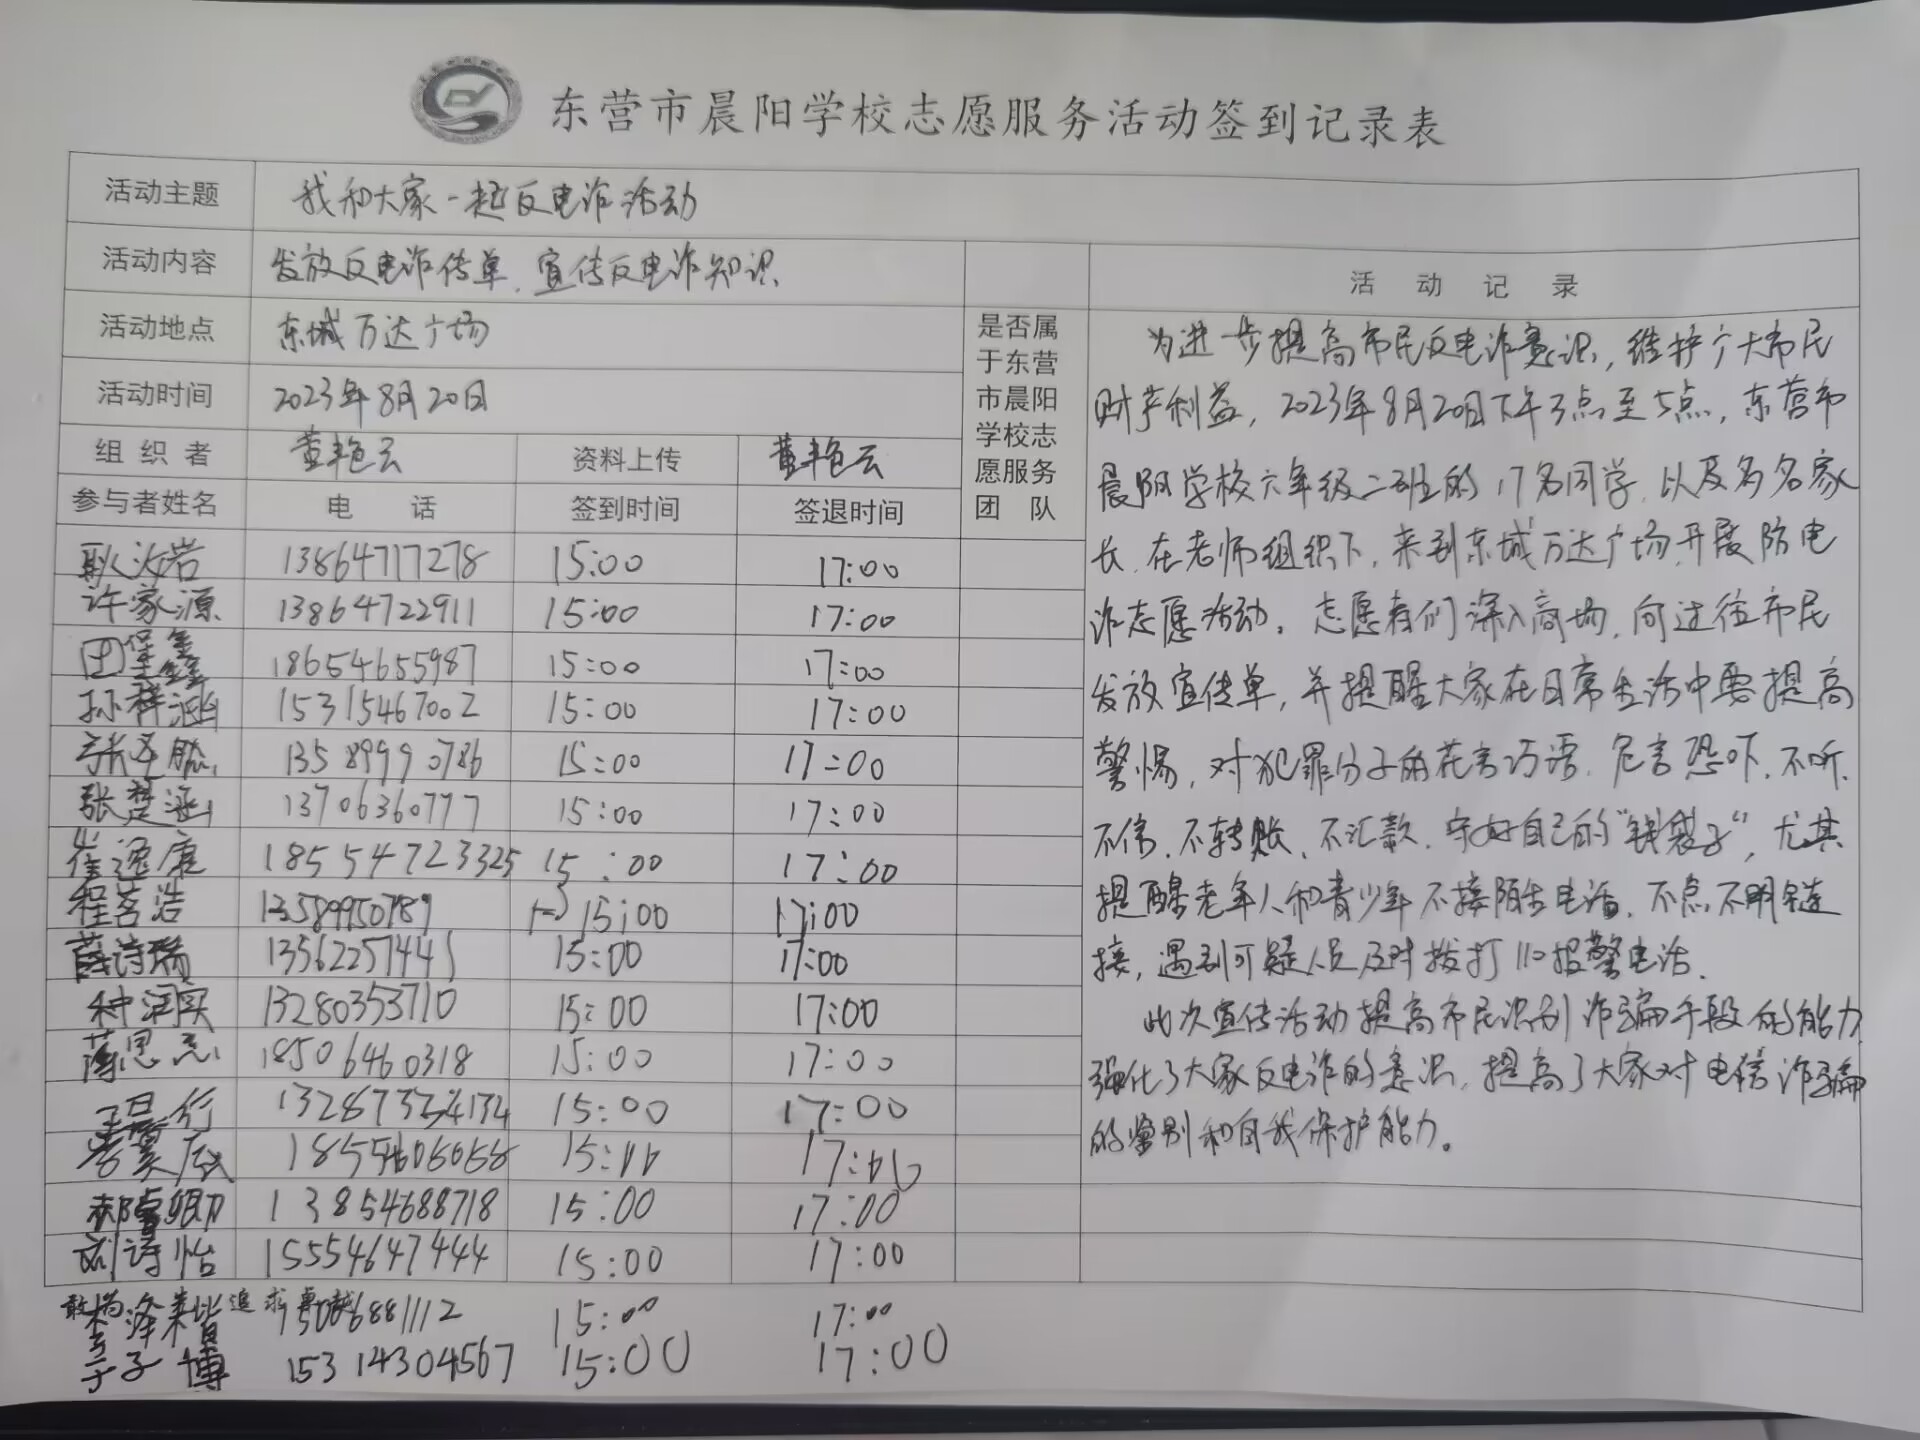 东营市晨阳学校志愿服务活动签到记录表
活动主题 我和大家一起反电诈活动
活动内容 发放反电诈传单、宣传反电诈知识
活动地点 东城万达广场
活动时间 2023年8月20日
组织者 董艳云 资料上传 董艳云
参与者姓名 电话 签到时间 签退时间
是否属
于东营
市晨阳
学校志
愿服务
团队
耿汝岩 13864717278 15:00 17:00
许家源 13864722911 15:00 17:00
田堡鑫 18654655987 15:00 17:00
孙梓涵 15315467002 15:00 17:00
张 13589990786 15:00 17:00
张楚涵 13706360777 15:00 17:00
崔逸康 18554723325 15:00 17:00
程茗浩 13589950789 15:00 17:00
薛诗瑞 13562257445 15:00 17:00
种润奕 13280353710 15:00 17:00
薄思 18506460318 15:00 17:00
行 15:00 17:00
15:00 17:00
郝 13854688718 15:00 17:00
刘诗怡 15554647444 15:00 17:00
敢为 追求卓越
泽楷 15:00 17:00
子博 15314304567 15:00 17:00
活动记录
为进一步提高市民反电诈意识,维护广大市民
财产利益,2023年8月20日下午3点至5点,东营市
晨阳学校六年级二班的17名同学,以及多名家
长,在老师组织下,来到东城万达广场开展防电
诈志愿活动。志愿者们深入商场,向过往市民
发放宣传单,并提醒大家在日常生活中要提高
警惕,对犯罪分子的花言巧语、危言恐吓,不听、
不信、不转账、不汇款,守好自己的“钱袋子”,尤其
提醒老年人和青少年不接陌生电话、不点不明链
接,遇到可疑人员及时拨打110报警电话.
此次宣传活动提高市民识别诈骗手段的能力,
强化了大家反电诈的意识,提高了大家对电信诈骗
的鉴别和自我保护能力。